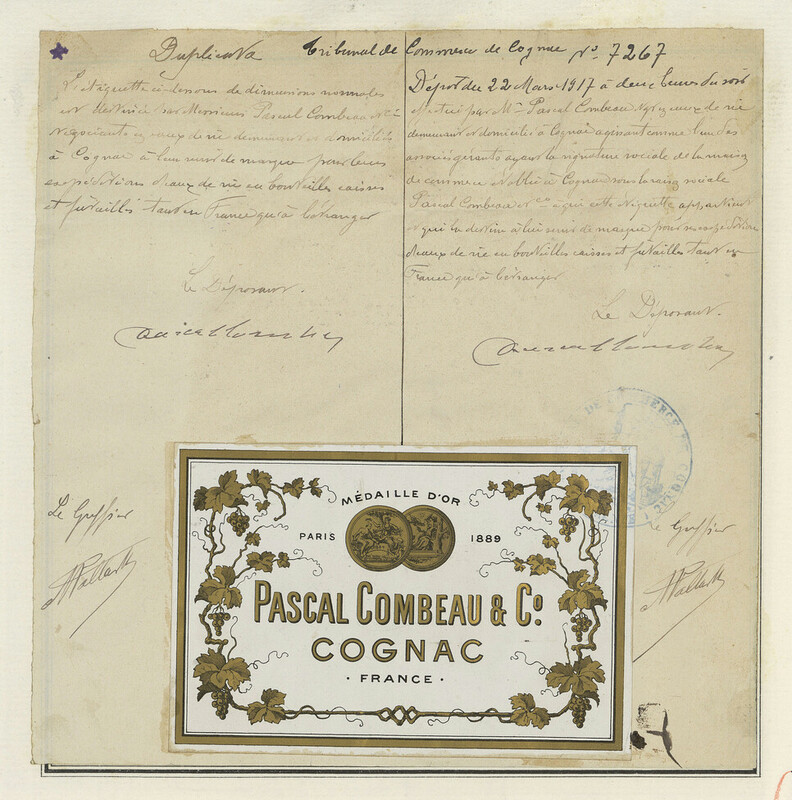 Duplicata
Tribunal de Commerce de Cognac Nº 7267
L'etiquette ci-dessous de dimensions normales
est destinée par Messieurs Pascal Combeau et Cie
négociants en eaux de vie demeurant et domiciliés
à Cognac à leur servir de marque pour leurs
expéditions d'eaux de vie en bouteilles caisses
et futailles tant en France qu'à l'étranger
Le Déposant.
Le Greffier
Dépôt du 22 Mars 1917 à deux heures du soir
effectué par Mr Pascal Combeau négt en eaux de vie
demeurant et domicilié à Cognac agissant comme l'un des
associés gérants ayant la signature sociale de la maison
de commerce établie à Cognac sous la raison sociale
Pascal Combeau et Cie à qui cette étiquette appartient
et qui la destine à lui servir de marque pour ses expéditions
d'eaux de vie en bouteilles caisses et futailles tant en
France qu'à l'étranger
Le Déposant.
Le Greffier
MÉDAILLE D'OR
PARIS 1889
PASCAL COMBEAU & Cº
COGNAC
· FRANCE ·